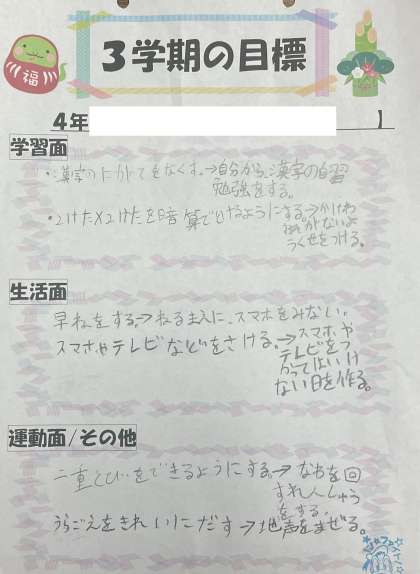 福
3学期の目標
4年 】
学習面
・漢字のにがてをなくす。→自分から、漢字の自習
勉強をする。
・2けた×2けたを暗算でけるようにする。→かけわ
すれがないよ
うくせをつける。
生活面
早ねをする。→ねるまえに、スマホをみない。
スマホやテレビなどをさける。→スマホや
テレビをつ
かってはいけ
ない日を作る。
運動面/その他
二重とびをできるようにする。→なわを回
すれんしゅう
をする。
うらごえをきれいにだす→地声をまぜる。